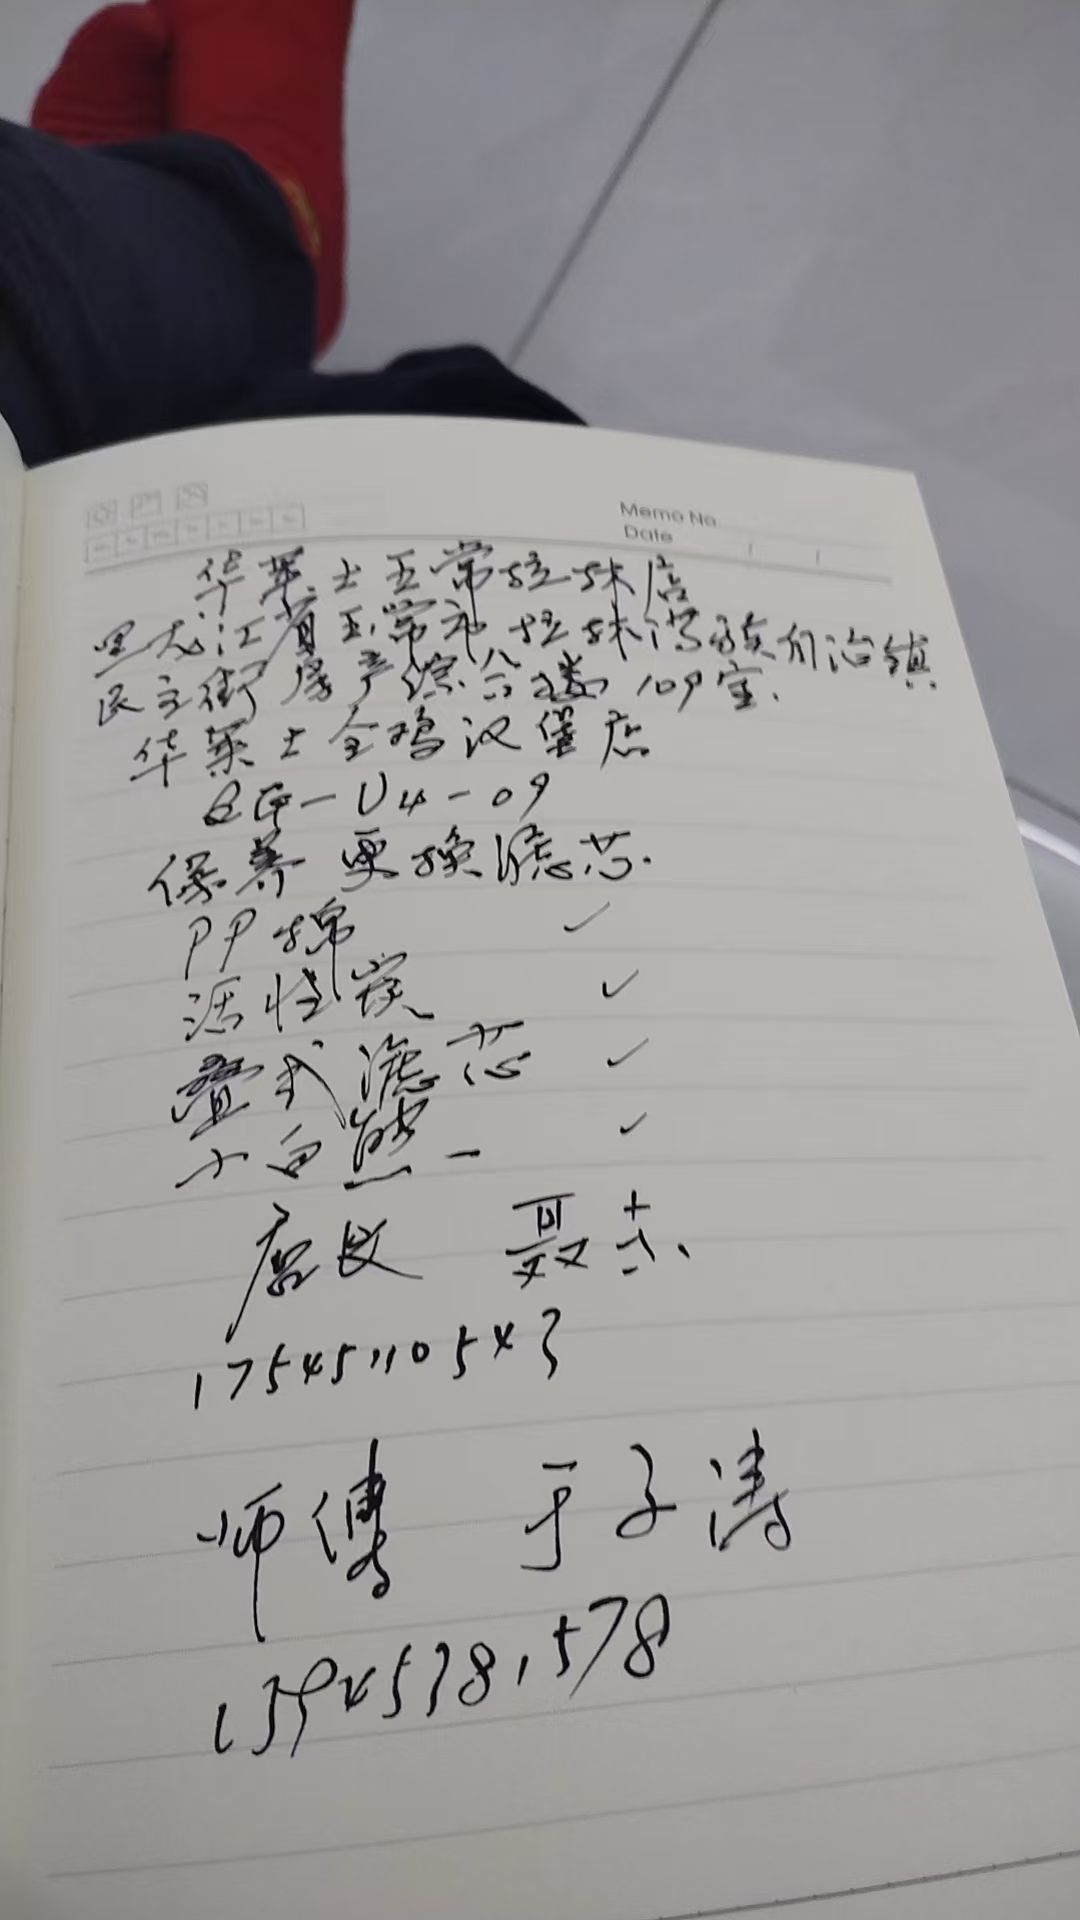 Memo No
Date
华莱士五常拉林店
黑龙江省五常市拉林满族自治镇
民主街房产综合楼109室.
华莱士全鸡汉堡店
-U4-09
保养 更换滤芯.
PP棉 ✓
活性炭 ✓
叠式滤芯 ✓
小白熊 ✓
店 聂
17545110543
师傅 于子涛
13945381578